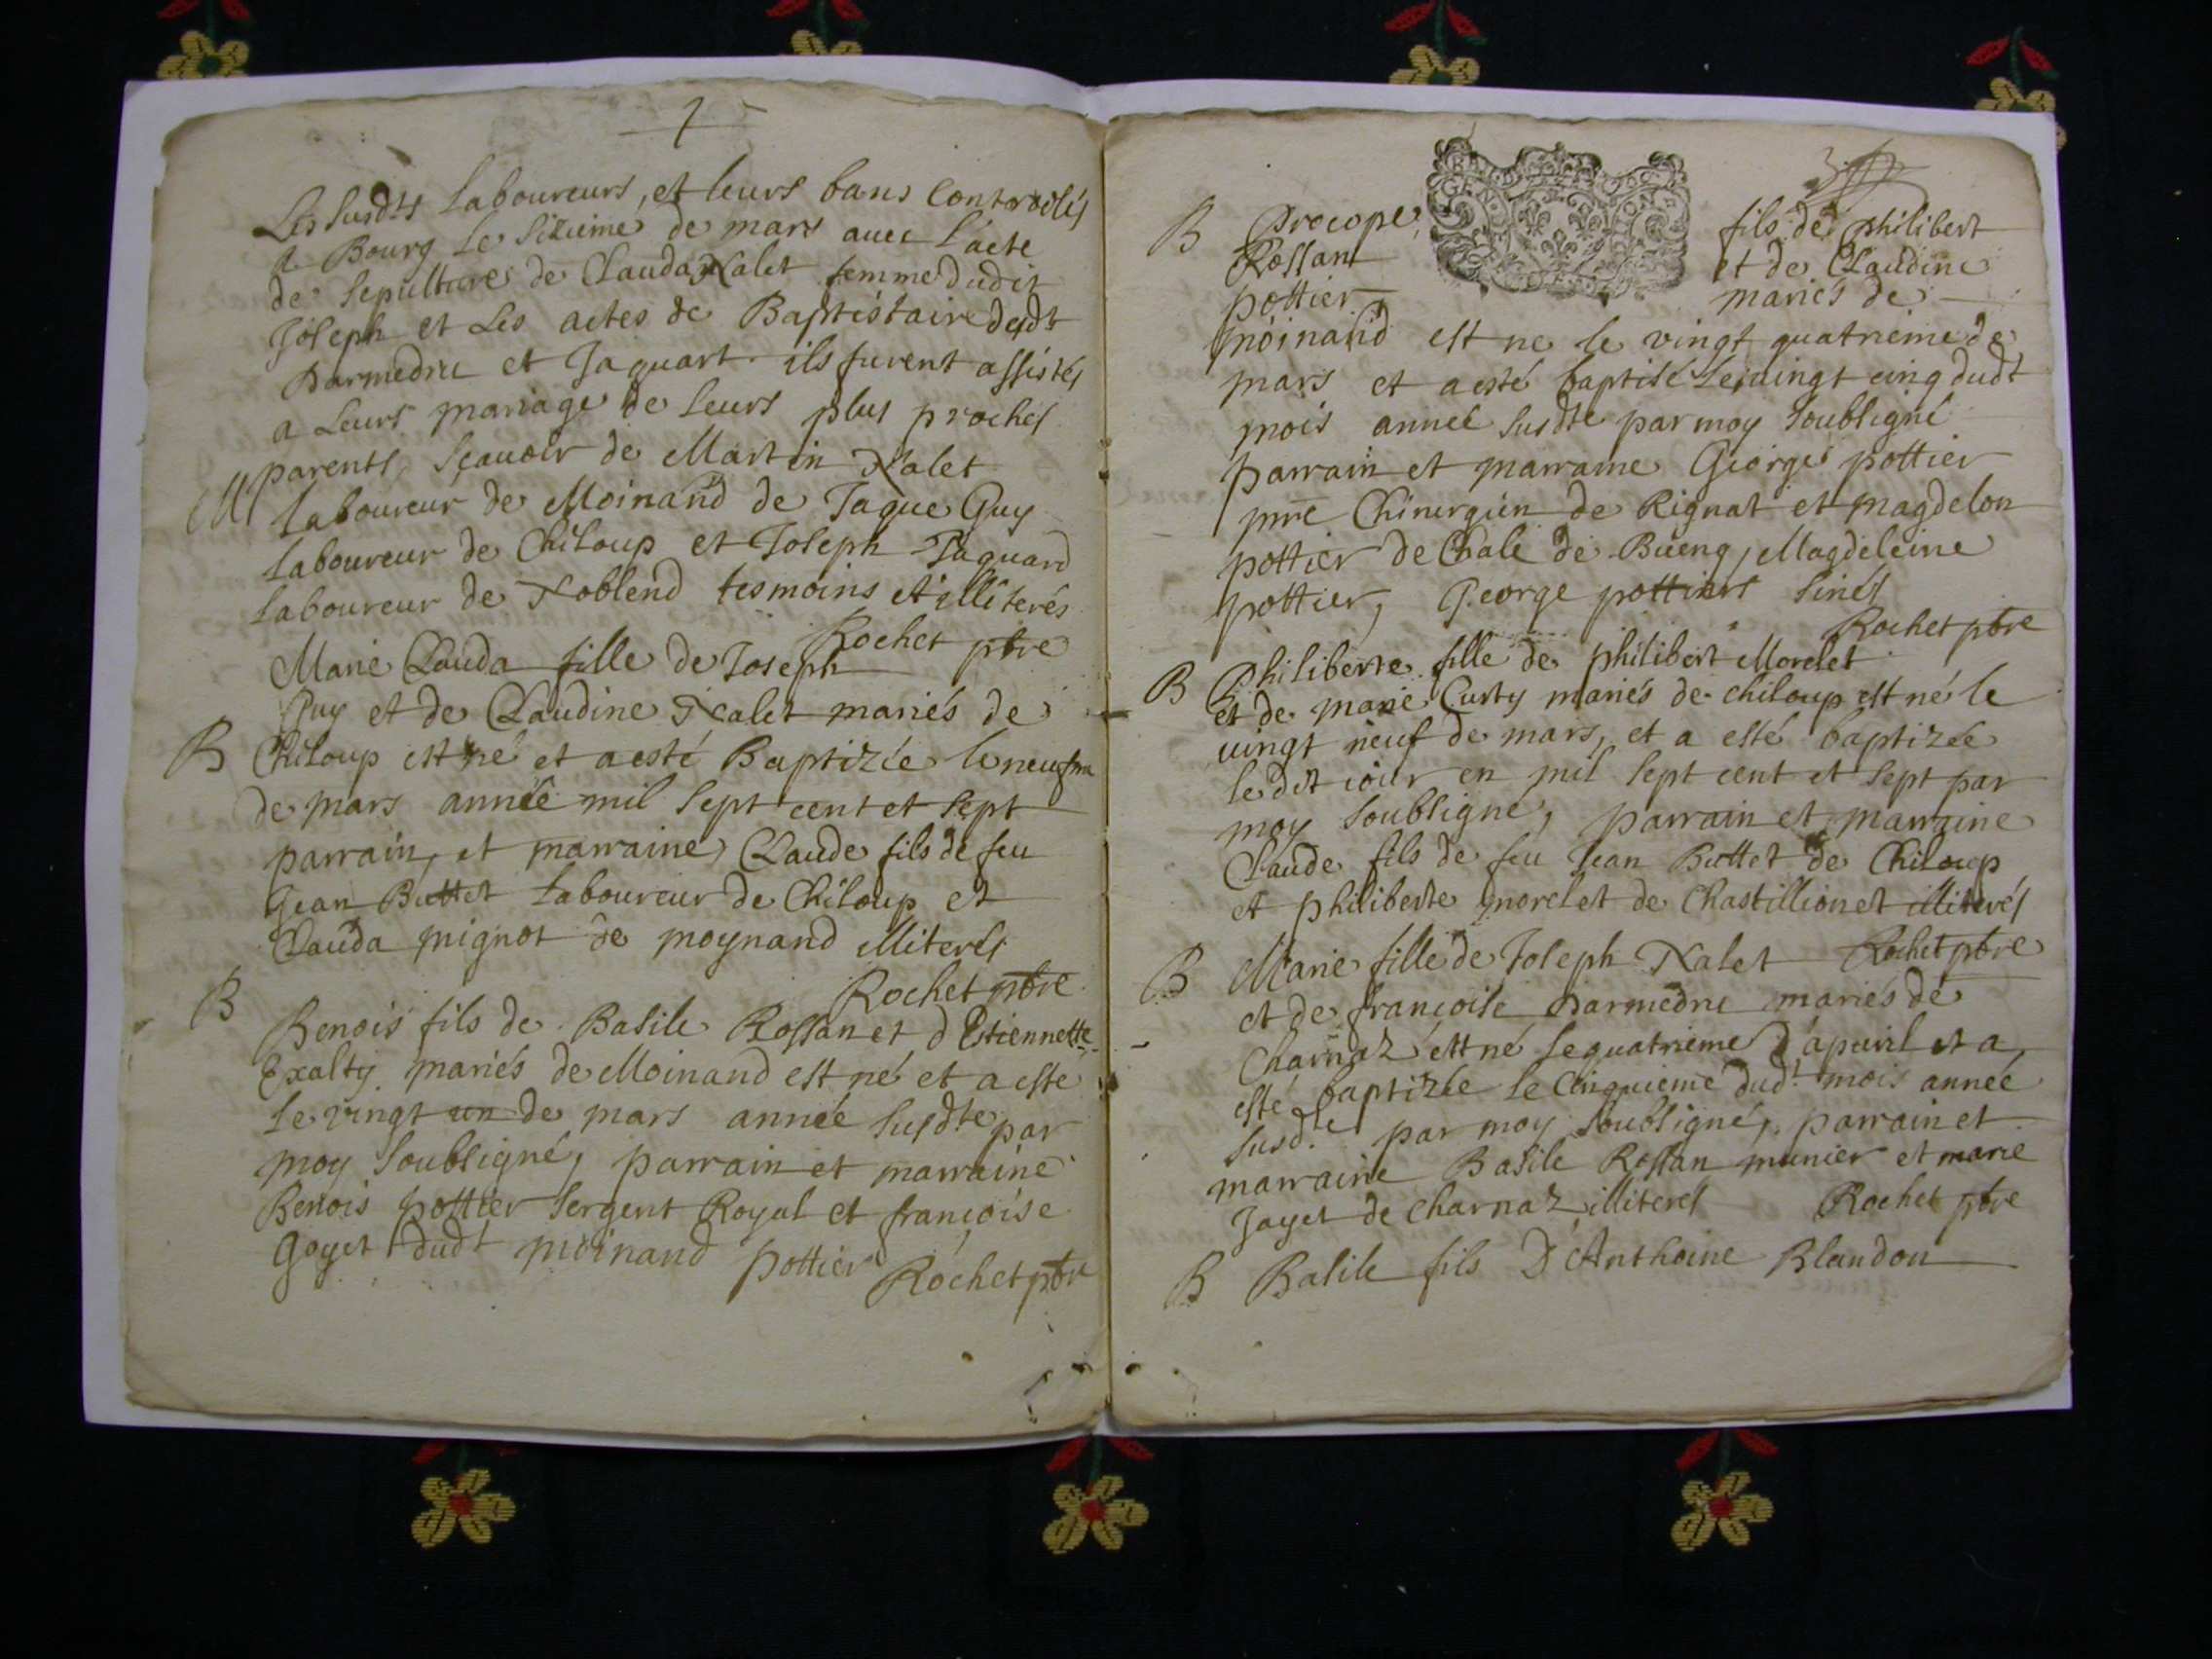 Les susdts laboureurs, et leurs bans Controolés
a Bourg le Sixieme de mars avec l'acte
de sepulture de Clauda Nalet femme dudit
Joseph et Les actes de Baptistaire desdt
Darmedru et Jaquart. ils furent assistés
a Leurs mariage de leurs plus proches
M parents, sçavoir de Martin Nalet
laboureur de Moinand de Jaque Guy
laboureur de Chiloup et Joseph Jaquard
laboureur de Noblend tesmoins et illiterés
Rochet ptre
Marie Clauda fille de Joseph
Guy et de Claudine Nalet mariés de
B Chiloup est né et a esté Baptizée le neufm
de mars année mil sept cent et sept
parrain, et marraine, Claude fils de feu
Jean Buttet Laboureur de Chiloup et
Clauda mignot de moynand illiterés
Rochet ptre
B Benois fils de Basile Rossan et d'Estiennette
Exalty mariés de Moinand est né et a esté
le vingt un de mars année susdte par
moy soubsigné, parrain et marraine
Benois pottier sergent Royal et françoise
Goyet dudt moinand pottier Rochet ptre
B Procope, fils de philibert
Rossant et de Claudine
pottier mariés de
moinand est ne le vingt quatrieme de
mars et a esté baptisé le vingt cinq dudt
mois année susdte par moy soubsigné
parrain et marraine Georges pottier
mre Chirurgien de Rignat et magdelon
pottier de Chale de Bueng, Magdeleine
pottier, George pottiers sinés
Rochet ptre
B Philiberte fille de philibert Morelet
et de marie Curty mariés de chiloup est né le
vingt neuf de mars, et a esté baptizée
ledit iour en mil sept cent et sept par
moy soubsigné, parrain et marraine
Claude fils de feu Jean Buttet de Chiloup
et philiberte morelet de Chastillionet illiterés
Rochet ptre
B Marie fille de Joseph Nalet
et de françoise Darmedru mariés de
Charnaz est né le quatrieme d'apuril et a
esté baptizée le Cinquieme dudt mois année
susd.te par moy soubsigné, parrain et
marraine Basile Rossan munier et marie
Jayet de charnaz illiterés Rochet ptre
B Basile fils D'Anthoine Blandon